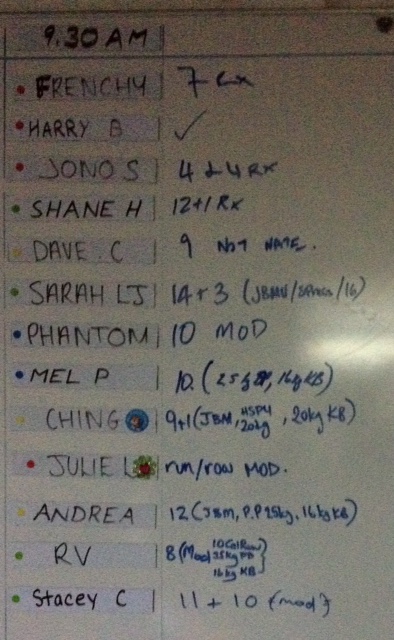 9.30 AM
FRENCHY 7 Rx
HARRY B ✓
JONO S 4 + 4 Rx
SHANE H 12+1 Rx
DAVE. C 9 NOT
SARAH LJ 14+3 (JBM/ /16)
PHANTOM 10 MOD
MEL P 10. (25kg , 16kg KB)
CHING 9+1 (JBM, HSPU 20kg, 20kg KB)
JULIE L run/row MOD.
ANDREA 12 (JBM, P.P 25kg, 16kg KB)
RV 8 (Mod 10 Cal Row
25kg
16kg KB)
Stacey C 11 + 10 (mod)